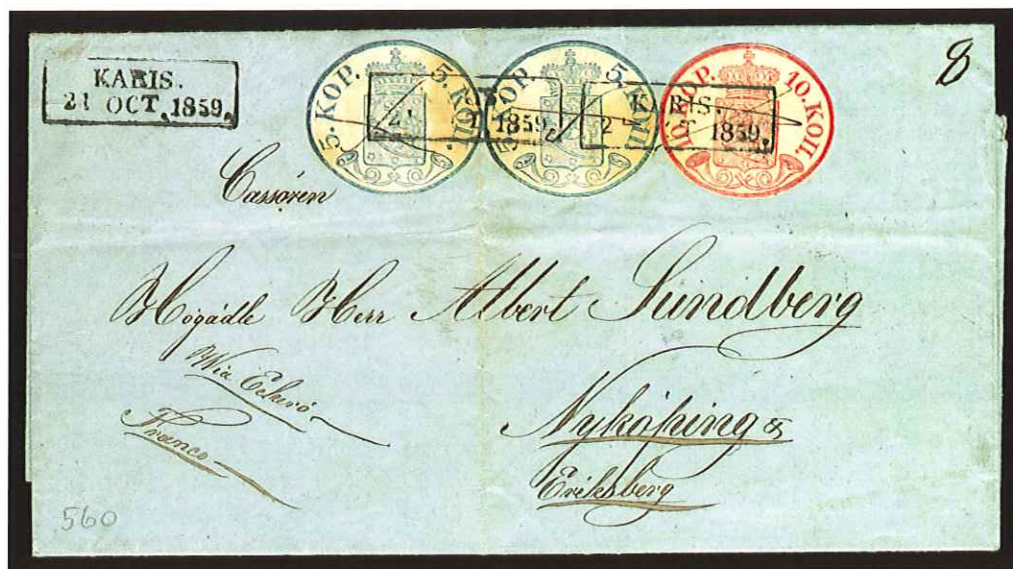 KARIS.
21 OCT. 1859.
5. KOP. 5. КОП.
5. KOP. 5. КОП.
10. KOP. 10. КОП.
1859.
KARIS.
1859.
8
Cassören
Högädle Herr Albert Sundberg
Wia Eckerö
Franco
Nyköping &
Eriksberg
560